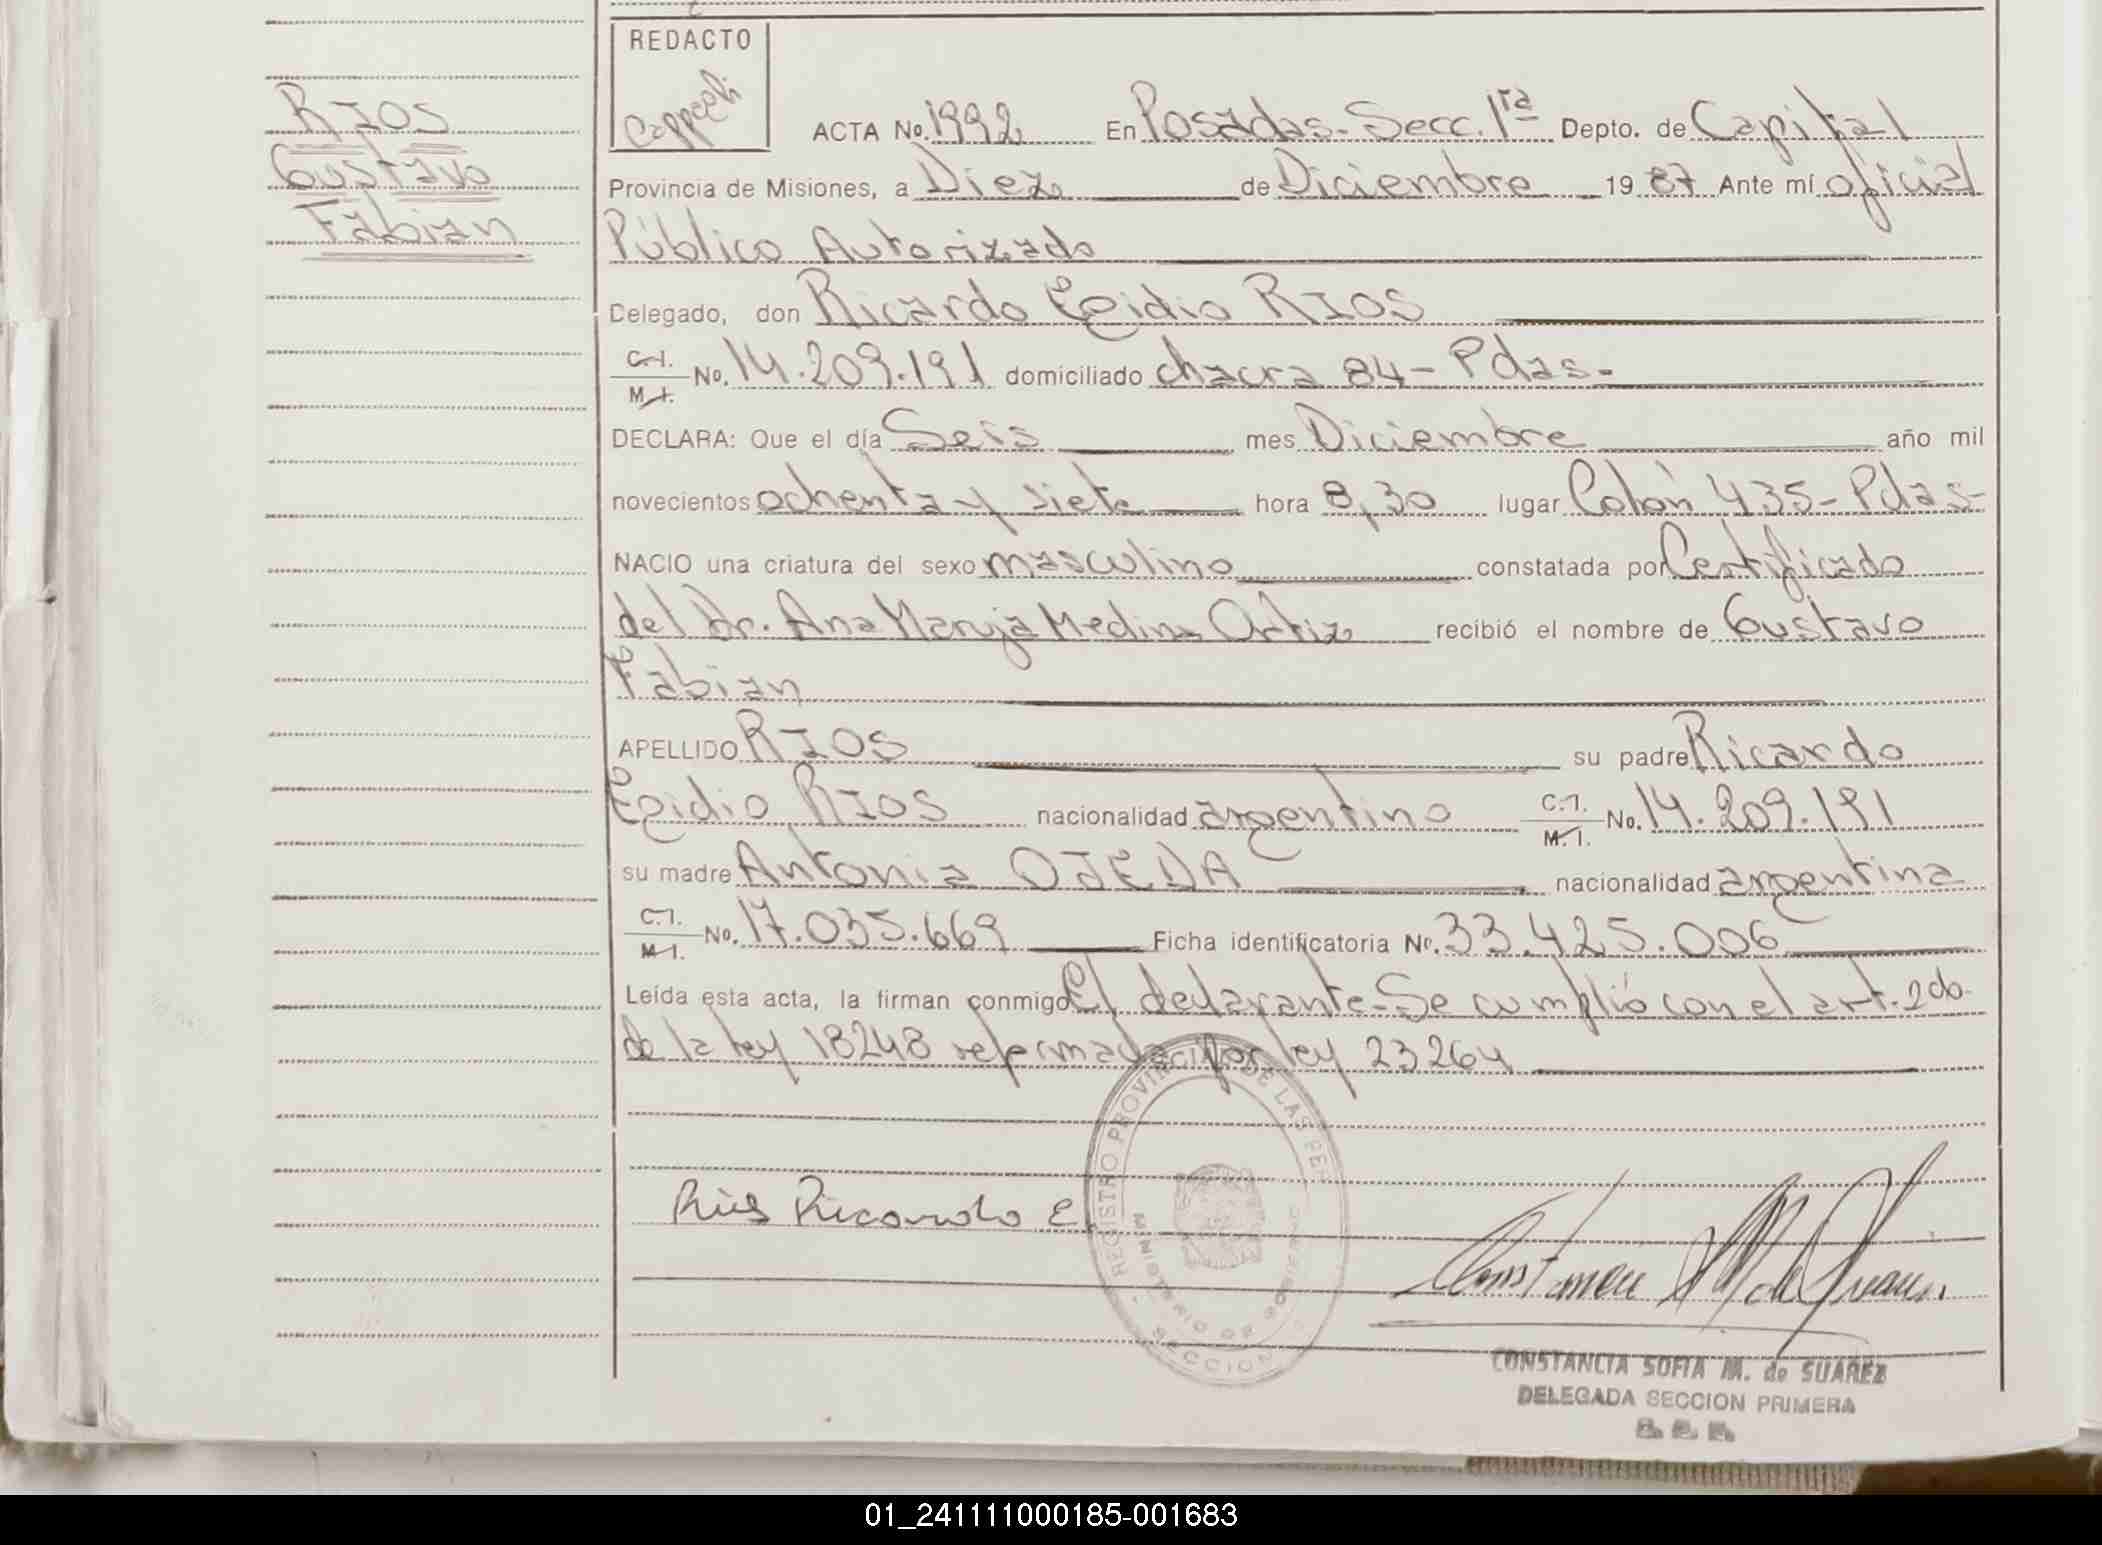 REDACTO
RIOS
Gustavo
Fabian
ACTA No. 1992 En Posadas- Secc. 1ra Depto. de Capital
Provincia de Misiones, a Diez de Diciembre 1987 Ante mí oficial
Público Autorizado
Delegado, don Ricardo Egidio RIOS
C.I. M.I. No. 14.209.191 domiciliado chacra 84- Pdas-
DECLARA: Que el día Seis mes Diciembre año mil
novecientos ochenta y siete hora 8,30 lugar Colón 435- Pdas-
NACIO una criatura del sexo masculino constatada por Certificado
del Dr. Ana María Medina Ortiz recibió el nombre de Gustavo
Fabian
APELLIDO RIOS su padre Ricardo
Egidio RIOS nacionalidad argentino C.I. M.I. No. 14.209.191
su madre Antonia OJEDA nacionalidad argentina
C.I. M.I. No. 17.035.669 Ficha identificatoria No. 33.425.006
Leída esta acta, la firman conmigo El declarante- Se cumplió con el art. 2do-
de la ley 18248 reformada por ley 23264
REGISTRO PROVINCIAL DE LAS PER
MINISTERIO DE GOBIERNO
SECCION
Rios Ricardo E.
Constancia M de Suarez
CONSTANCIA SOFIA M. de SUAREZ
DELEGADA SECCION PRIMERA
01_241111000185-001683